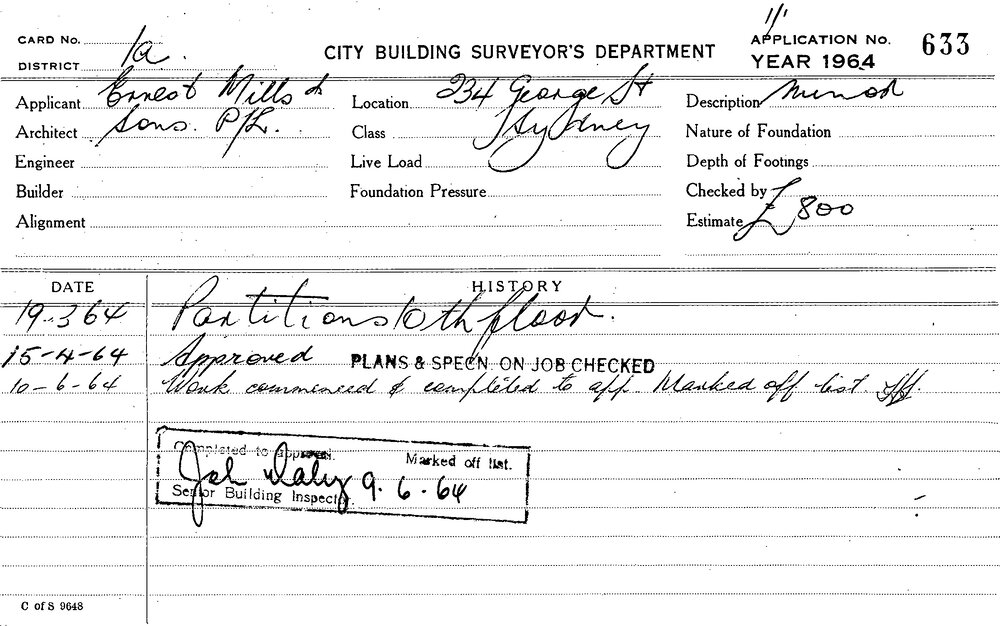 CARD No.
DISTRICT 1a.
CITY BUILDING SURVEYOR'S DEPARTMENT
APPLICATION No. 633
YEAR 1964
Applicant Ernest Mills &
Architect Sons. P/L.
Engineer
Builder
Alignment
Location 234 George St
Class Sydney
Live Load
Foundation Pressure
Description Minor
Nature of Foundation
Depth of Footings
Checked by
Estimate £800
DATE HISTORY
19.3.64 Partitions 10th floor.
15-4-64 Approved PLANS & SPECN. ON JOB CHECKED
10-6-64 Work commenced & completed to app. Marked off list.
Completed to approval. Marked off list.
John Daley 9.6.64
Senior Building Inspector.
C of S 9648